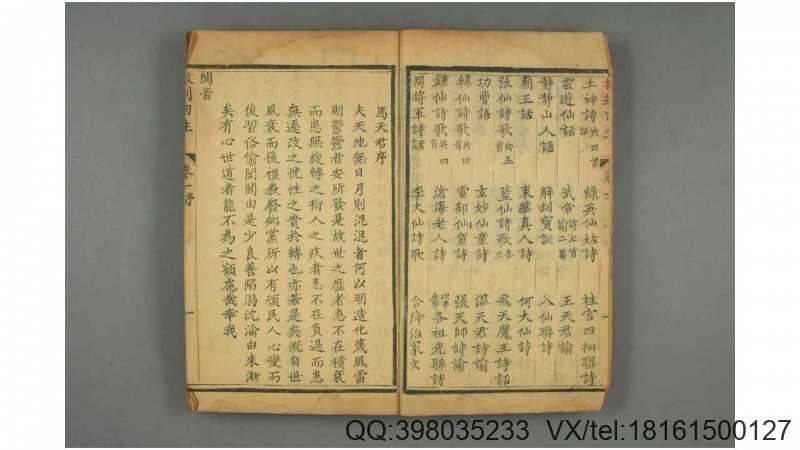 土神詩共四首 綠英仙姑詩 桂宮四相聯詩
雲遊仙話 武帝詩七首諭二篇 王天君諭
靜靜山人話 解刦寳訓 八仙聯詩
廟王話 東華真人詩 何大仙詩
張仙詩歌共五 藍仙詩歌 飛天魔王詩話
功曹語 玄妙仙童詩 溫天君詩諭
韓仙詩歌共四首 雷部仙童詩 張天師詩諭
鍾仙詩歌共四首 滄海老人詩 各祖光聯詩
周將軍詩話 李大仙詩歌 合降治家文
馬天君序
夫天地無日月則混混者何以明造化蔑風雷
則鬱鬱者安所發是故世之靡者患不在積衰
而患無旋轉之術人之疚者患不在負過而患
無遷改之忱性之貴於轉也亦若是矣慨自世
風衰而後禮義廢鄉黨所以有頑民人心變而
後習俗偷閭閻由是少良善陷溺沈淪由來漸
矣有心世道者能不為之顧慮哉幸我
關帝
卷一序
一
QQ:398035233 VX/tel:18161500127